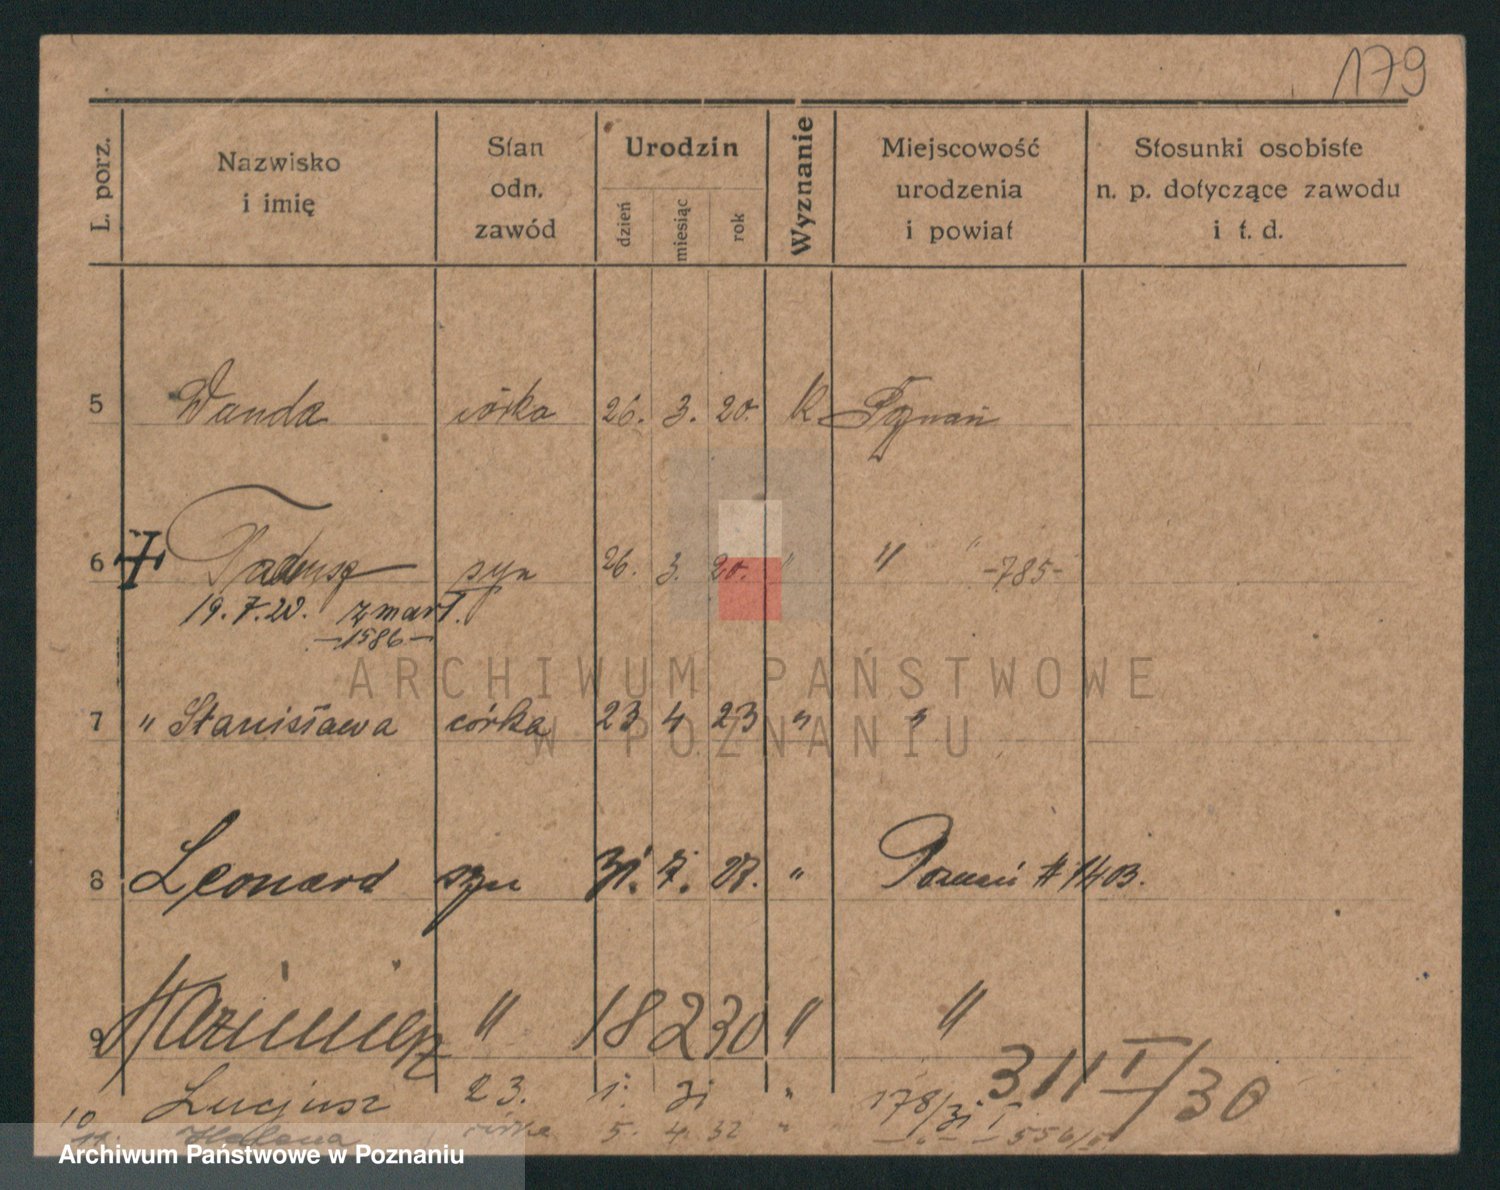 179
L. porz.
Nazwisko
i imię
Stan
odn.
zawód
Urodzin
dzień
miesiąc
rok
Wyznanie
Miejscowość
urodzenia
i powiat
Stosunki osobiste
n. p. dotyczące zawodu
i t. d.
5 Wanda córka 26. 3. 20. K Poznań
6 Tadeusz syn 26. 3. 20. " " " -785-
19.7.20. zmarł.
-1586-
7 " Stanisława córka 23 4 23 " "
8 Leonard syn 31. 7. 27. " Poznań # 1403.
9 Kazimierz " 18 2 30 " "
311 I/30
10 Lucjusz 23. 1. 31 " 178/31 I
11. Helena córka 5. 4. 32 " 556/I
ARCHIWUM PAŃSTWOWE
W POZNANIU
Archiwum Państwowe w Poznaniu